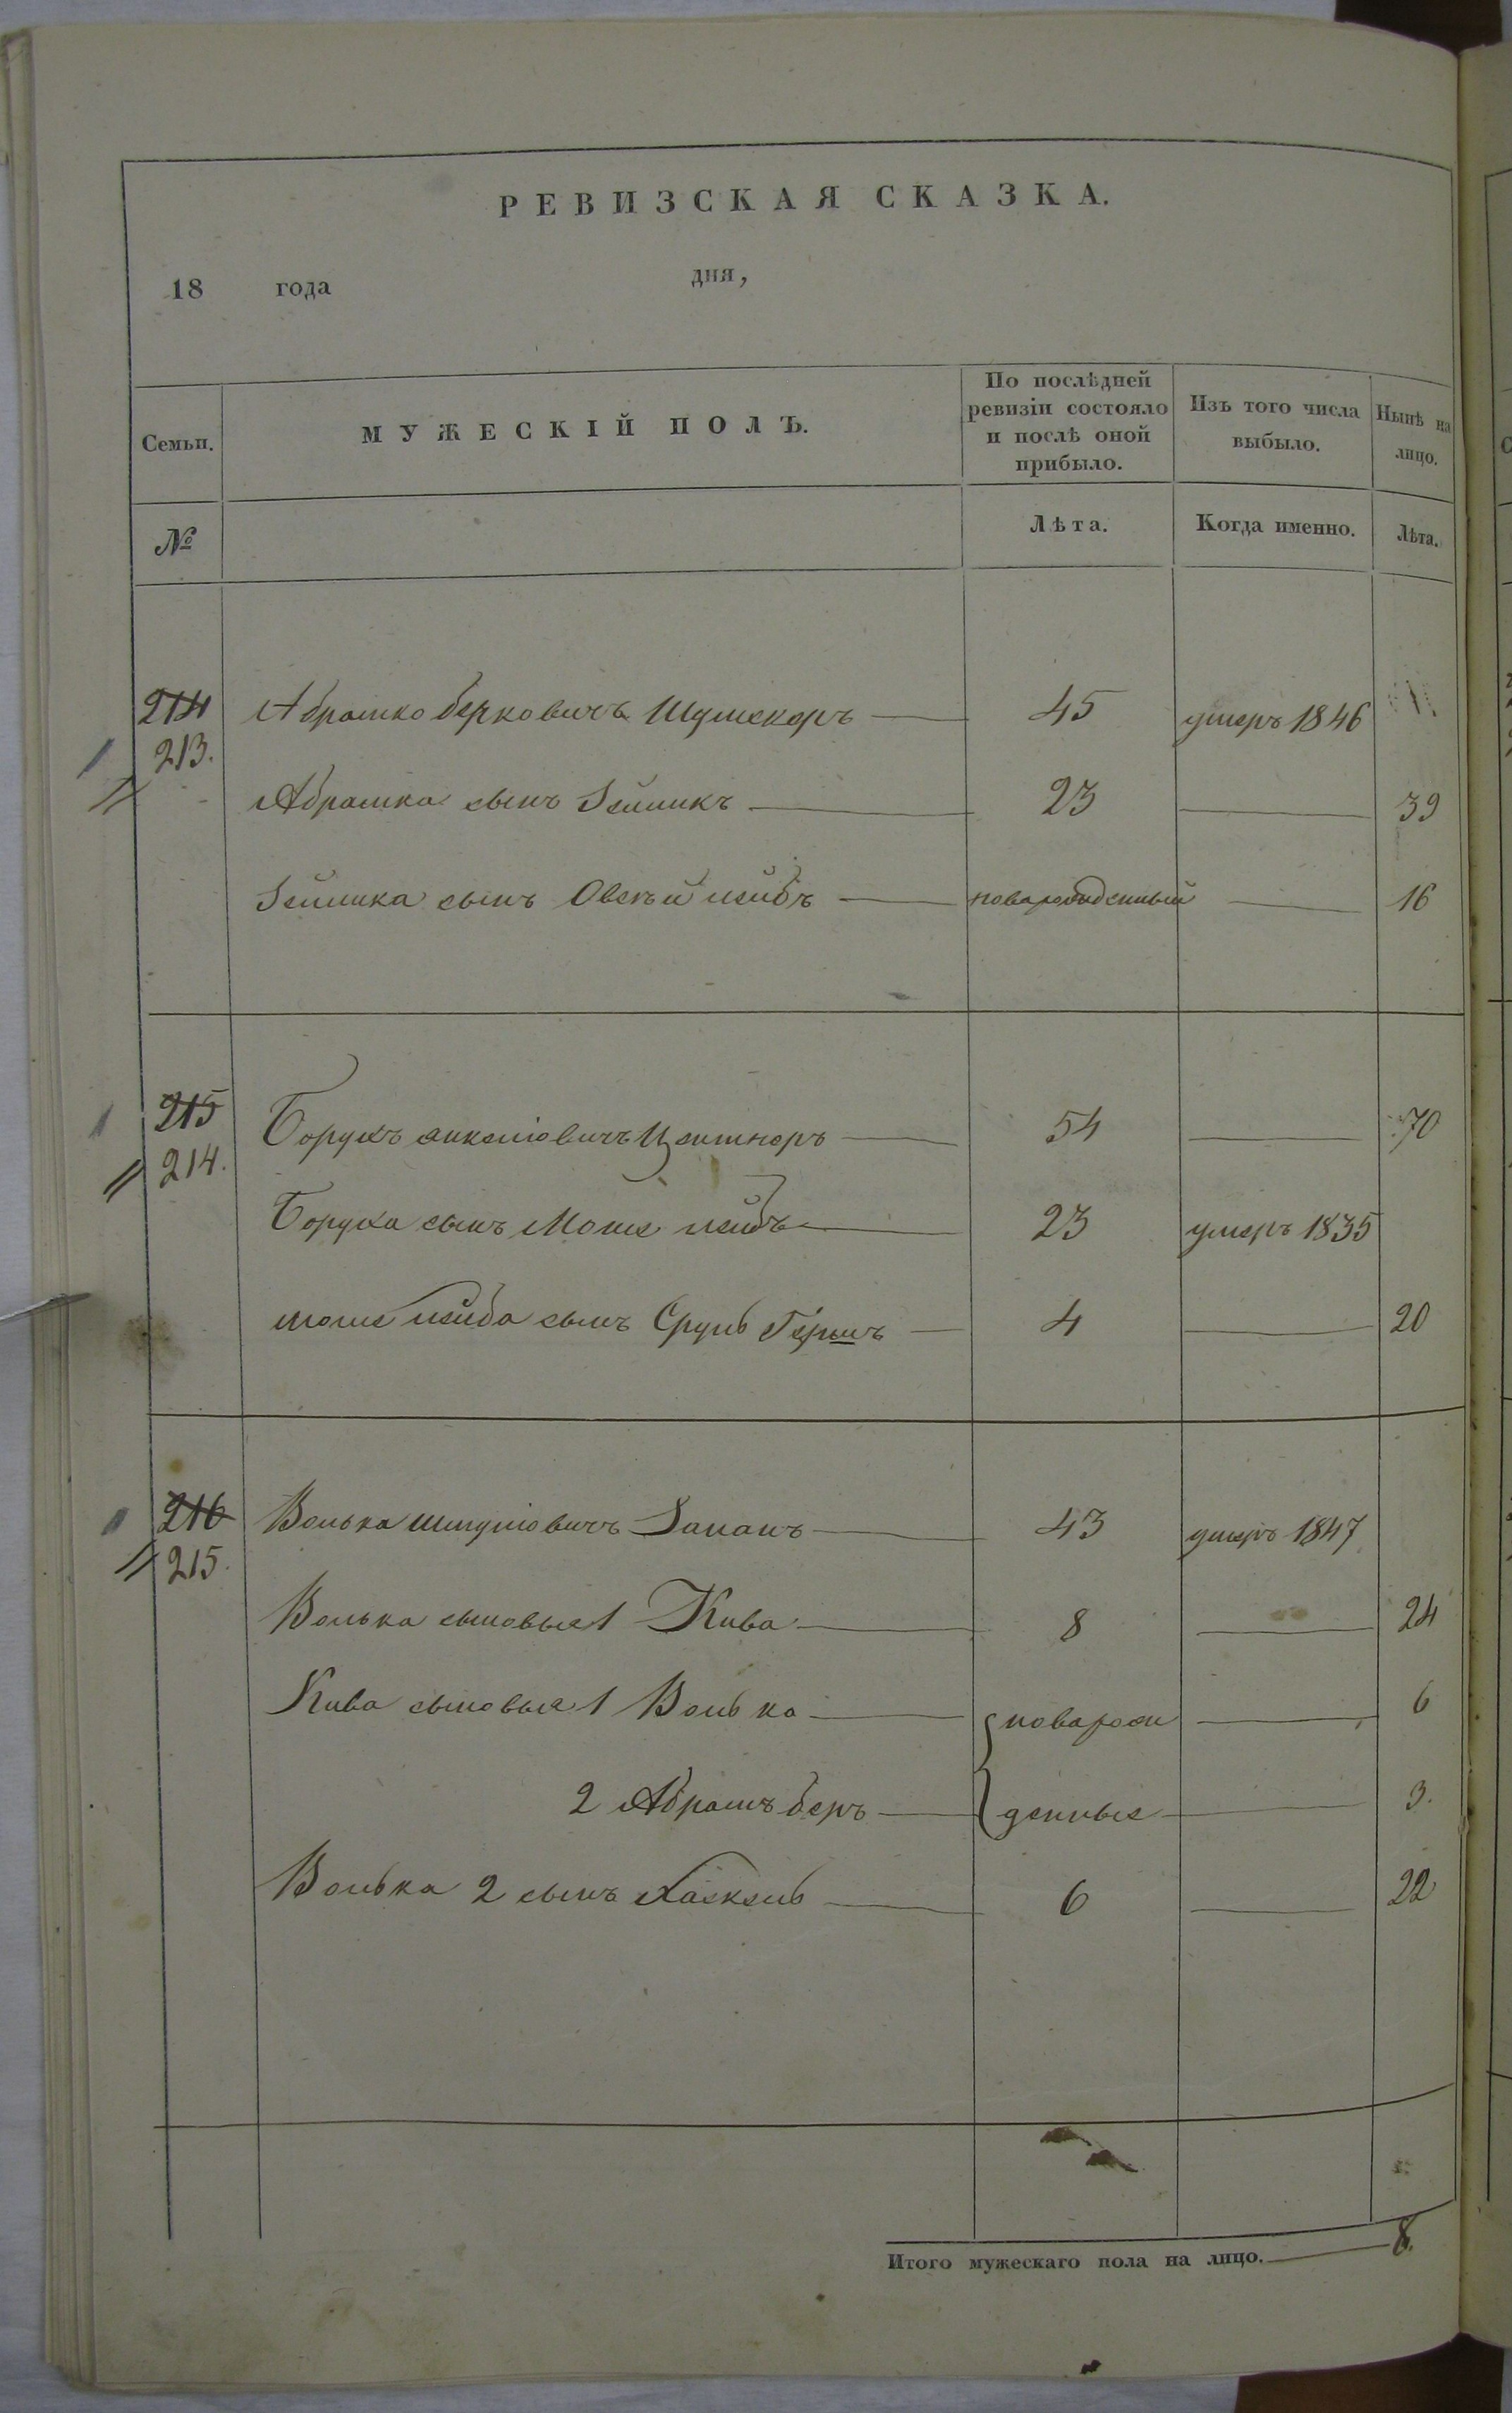 РЕВИЗСКАЯ СКАЗКА.
18 года дня,
Семьи. МУЖЕСКІЙ ПОЛЪ. По послѣдней ревизіи состояло и послѣ оной прибыло. Изъ того числа выбыло. Нынѣ на лицо.
№ Лѣта. Когда именно. Лѣта.
214 Абрамко берковичъ Шумекеръ 45 умеръ 1846
213.
Абрамка сынъ Зейликъ 23 39
Зейлика сынъ Овсѣй лейбъ новарожденный 16
215 Борухъ анкелiовичъ Центнеръ 54 70
214.
Боруха сынъ Моше лейбъ 23 умеръ 1835
моше лейба сынъ Сруль Гершъ 4 20
216 Волька шмулiовичъ 43 умеръ 1847
215.
Волька сыновья 1 Кива 8 24
Кива сыновья 1 Волька новарож 6
2 Абрамъ беръ денные 3.
Волька 2 сынъ Хаскель 6 22
Итого мужескаго пола на лицо. 8.